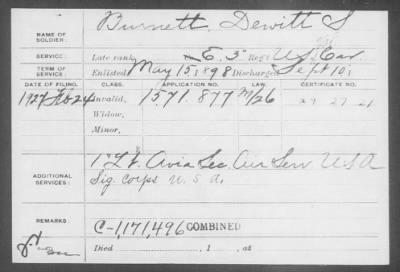 NAME OF SOLDIER: Burnett, Dewitt S
SERVICE: Late rank, E, 3" Reg't U.S. Cav.
TERM OF SERVICE: Enlisted May 15, 1898 Discharged Sept 10,
DATE OF FILING. CLASS. APPLICATION NO. LAW. CERTIFICATE NO.
1927 Feb 24 Invalid, 1571.877 27 27 21
Widow,
Minor,
ADDITIONAL SERVICES: 1" Lt. Avia Sec Air Serv U.S.A
Sig. Corps U.S.A.
REMARKS: C-1,171,496 COMBINED
Died , 1 , at